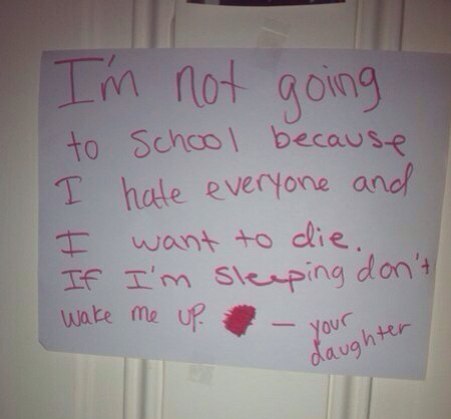 I'm not going
to school because
I hate everyone and
I want to die.
If I'm sleeping don't
wake me up. — your
daughter